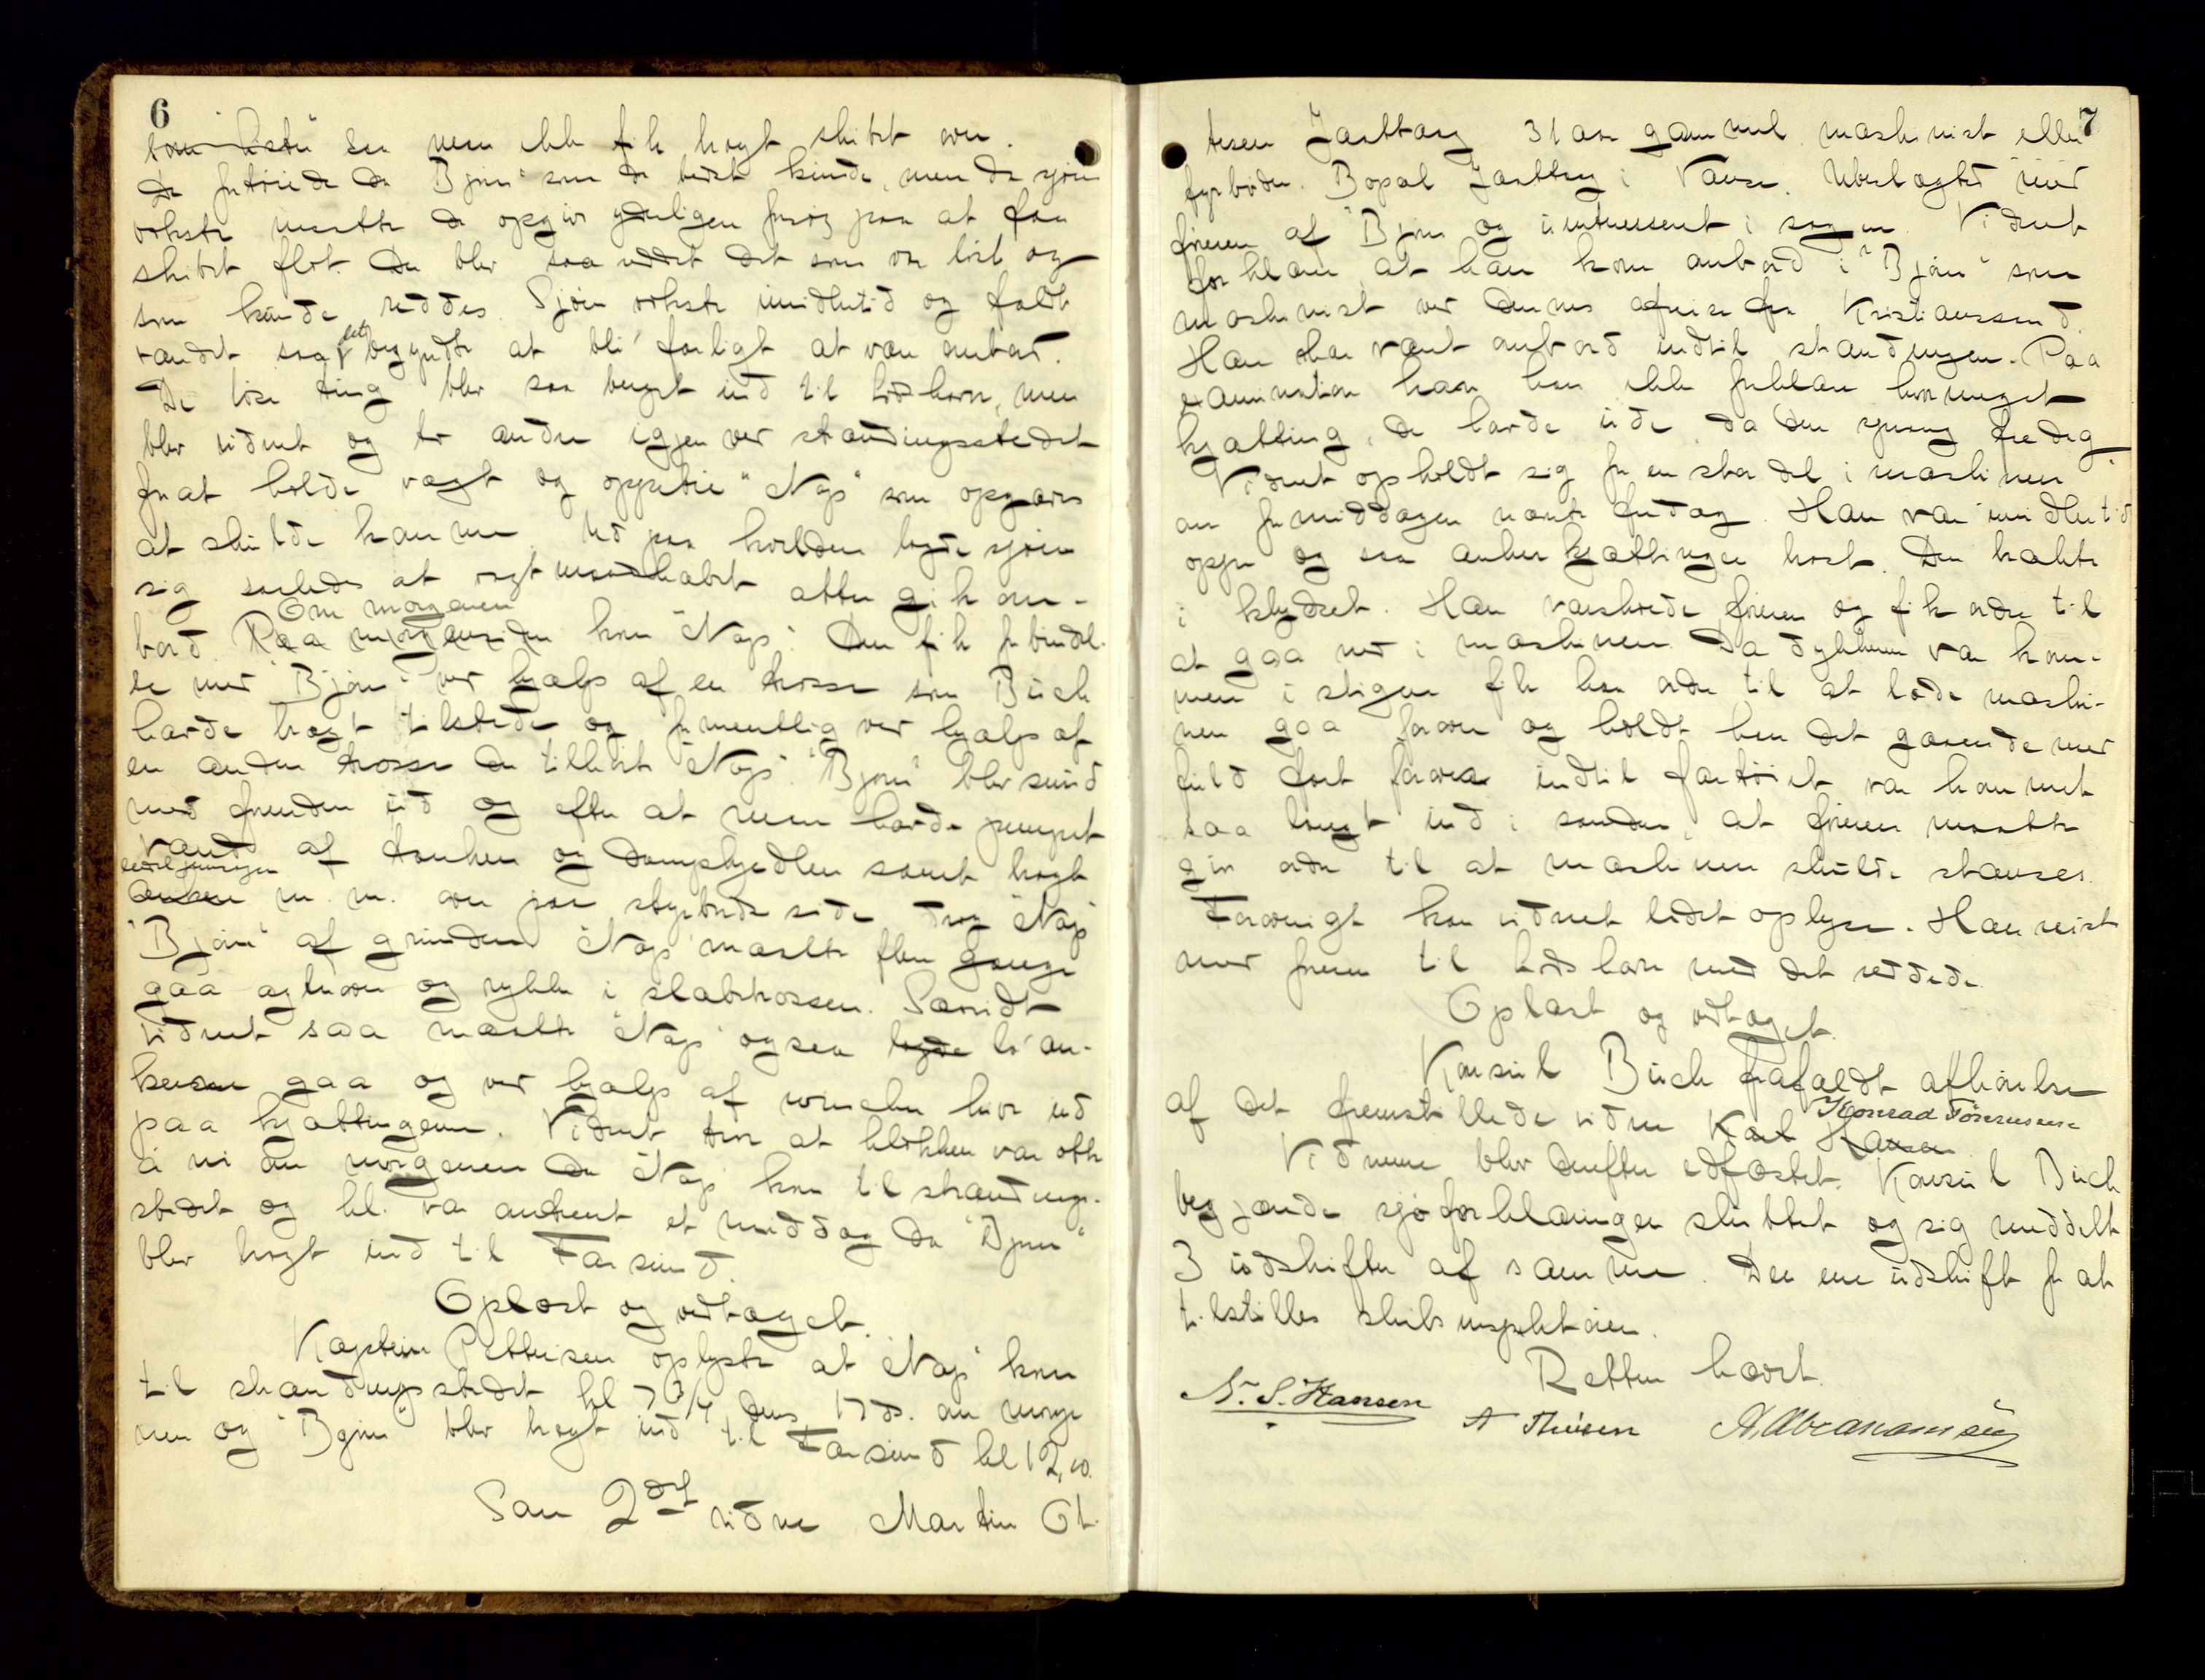 6
saa men ikke fik hogt skibet over.
De fortøiede da "Bjørn" som de bedst kunde, men da sjøen
vokste maatte de opgive yderligere forsøg paa at faa
skibet flot. Der blev saa reddet det som var løst og
som kunde reddes. Sjøen vokste imidlertid og faldt
vandet saa det begyndte at bli farligt at være ombord.
De løse ting blev saa berget ind til Lidshavn, men
blev vidnet og to andre igjen ved strandingsstedet
for at holde vagt og oppebie "Nap" som opgaves
at skulde komme. Ud paa kvelden lagde sjøen
sig saaledes at vagtmandskabet atter gik om-
Om morgenen
bord. Paa morgensiden kom "Nap". Den fik forbindel-
se med "Bjørn" ved hjælp af en trosse som Buch
havde bragt tilstede og formentlig ved hjælp af
en anden trosse der tilhørte "Nap". "Bjørn" blev snud
med forenden ud og efter at men havde pumpet
vand af tanken og dampkjedlen samt bragt
anker m. m. over paa styrbords side drog "Nap"
"Bjørn" af grunden. "Nap" maatte flere gange
gaa agterover og rykke i slabetrossen. Saavidt
vidnet saa maatte "Nap" ogsaa lagde la an-
keren gaa og ved hjælp af winchen hive ud
paa kjættingen. Vidnet tror at klokken var otte
á ni om morgenen da "Nap" kom til strandings-
stedet og kl. var omtrent et middag da "Bjørn"
blev bragt ind til Farsund.
Oplæst og vedtaget.
Kaptein Pettersen oplyste at "Nap" kom
til strandingsstedet kl 7 3/4 den 17 ds. om morge-
nen og "Bjørn" blev bragt ind til Farsund kl 12,10.
Som 2det vidne Martin Ot-
7
tesen Jaattaog 31 aar gammel maskinist eller
fyrbøder. Bopæl i Vanse. Ubeslægtet med
føreren af "Bjørn" og uinteressert i sagen. Vidnet
forklarer, at han kom ombord i "Bjørn" som
maskinist ved dennes afreise fra Kristianssand.
Han har været ombord indtil strandingen. Paa
examination kan han ikke forklare hvormeget
kjætting, de havde ude, da den sprang fredag.
Vidnet opholdt sig for en stor del i maskinen
om formiddagen næste fredag. Han var imidlertid
oppe og saa ankerkjættingen brast. Den brakte
i klydset. Han varskoede føreren og fik ordre til
at gaa ned i maskinen. Da dykkeren var kom-
men i stigen fik han ordre til at lade maski-
nen gaa forover og holdt han det gaaende med
fuld fart forover indtil fartøiet var kommet
saa langt ind i sanden, at føreren maatte
give ordre til at maskinen skulde stanses.
Forøvrigt kan vidnet lidet oplyse. Han reiste
med føreren til Lidshavn med det reddede.
Oplæst og vedtaget.
Konsul Buch frafaldt afhørelse
Konrad Tønnessen
af det fremstillede vidne Karl Hansen
Vidnerne blev derefter edfæstet. Konsul Buch
begjærede sjøforklaringen sluttet og sig meddelt
3 udskrifter af samme. Den ene udskrift for at
tilstilles skibsinspektøren.
Retten hævet.
N. S. Hansen A Thuesen A. Abrahamsen